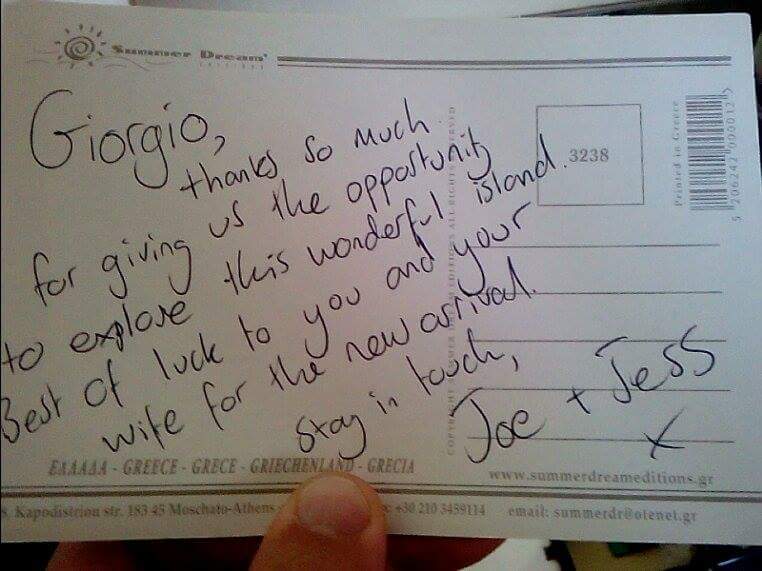 Summer Dream
Giorgio,
thanks so much
for giving us the opportunity
to explore this wonderful island.
Best of luck to you and your
wife for the new arrival.
Stay in touch,
Joe + Jess
x
3238
Printed in Greece
5 206242 000012 5
ΕΛΛΑΔΑ - GREECE - GRECE - GRIECHENLAND - GRECIA
www.summerdreameditions.gr
S. Kapodistriou str. 183 45 Moschato-Athens
+30 210 3459114 email: summerdr@otenet.gr